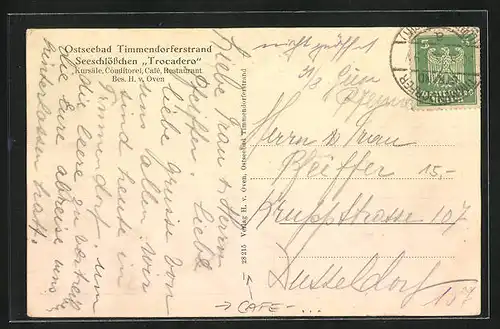 Ostseebad Timmendorferstrand
Seeschlößchen „Trocadero"
Kursäle, Conditorei, Café, Restaurant
Bes. H. v. Oven
Liebe Frau & Herrn
Pfeiffer. Liebe
liebe Grüsse von
uns allen. Wir
sind heute in
Timmendorf, um
die Leere zu
die Eure Abreise uns
hinterlassen hat.
28215 Verlag H. v. Oven, Ostseebad Timmendorferstrand
nicht
Herrn & Frau
Pfeiffer 15,-
Kruppstrasse 107
Düsseldorf
107
→ CAFE - ...
5
Deutsches
Reich